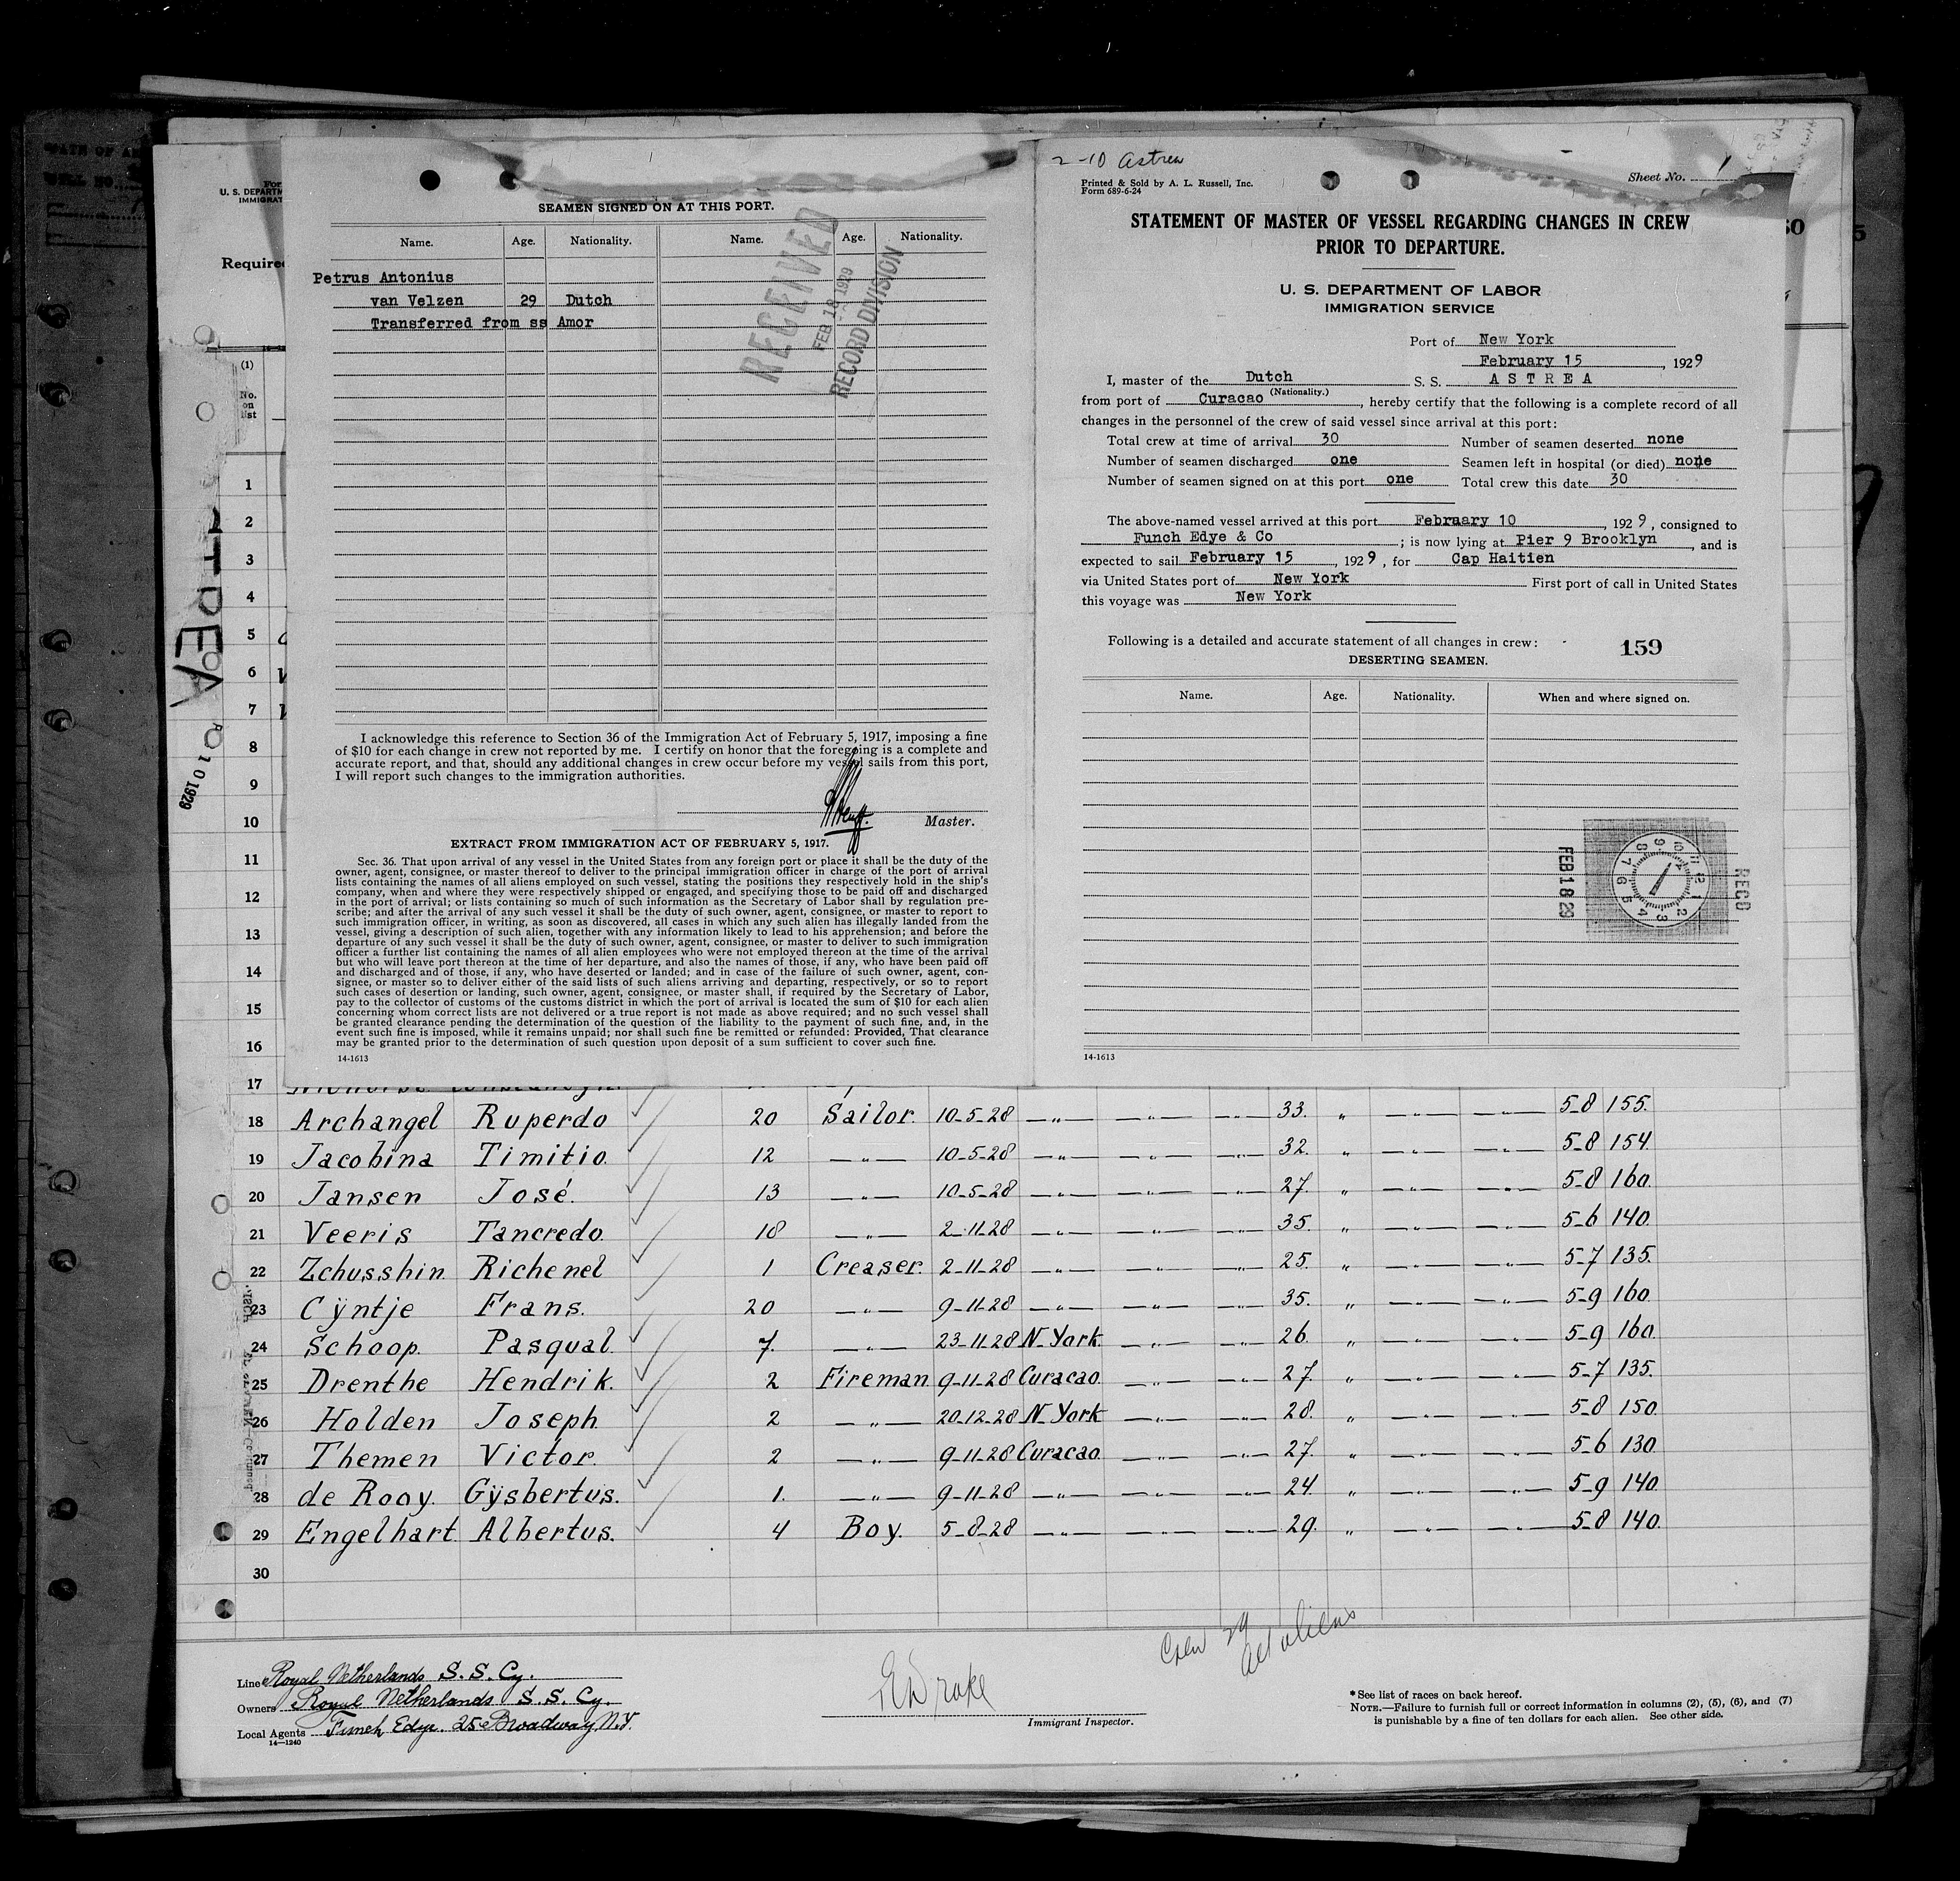 SEAMEN SIGNED ON AT THIS PORT.
Name. Age. Nationality. Name. Age. Nationality.
Petrus Antonius
van Velzen 29 Dutch
Transferred from ss Amor
RECEIVED
FEB 18 1929
RECORD DIVISION
I acknowledge this reference to Section 36 of the Immigration Act of February 5, 1917, imposing a fine
of $10 for each change in crew not reported by me. I certify on honor that the foregoing is a complete and
accurate report, and that, should any additional changes in crew occur before my vessel sails from this port,
I will report such changes to the immigration authorities.
Master.
EXTRACT FROM IMMIGRATION ACT OF FEBRUARY 5, 1917.
Sec. 36. That upon arrival of any vessel in the United States from any foreign port or place it shall be the duty of the
owner, agent, consignee, or master thereof to deliver to the principal immigration officer in charge of the port of arrival
lists containing the names of all aliens employed on such vessel, stating the positions they respectively hold in the ship's
company, when and where they were respectively shipped or engaged, and specifying those to be paid off and discharged
in the port of arrival; or lists containing so much of such information as the Secretary of Labor shall by regulation pre-
scribe; and after the arrival of any such vessel it shall be the duty of such owner, agent, consignee, or master to report to
such immigration officer, in writing, as soon as discovered, all cases in which any such alien has illegally landed from the
vessel, giving a description of such alien, together with any information likely to lead to his apprehension; and before the
departure of any such vessel it shall be the duty of such owner, agent, consignee, or master to deliver to such immigration
officer a further list containing the names of all alien employees who were not employed thereon at the time of the arrival
but who will leave port thereon at the time of her departure, and also the names of those, if any, who have been paid off
and discharged and of those, if any, who have deserted or landed; and in case of the failure of such owner, agent, con-
signee, or master so to deliver either of the said lists of such aliens arriving and departing, respectively, or so to report
such cases of desertion or landing, such owner, agent, consignee, or master shall, if required by the Secretary of Labor,
pay to the collector of customs of the customs district in which the port of arrival is located the sum of $10 for each alien
concerning whom correct lists are not delivered or a true report is not made as above required; and no such vessel shall
be granted clearance pending the determination of the question of the liability to the payment of such fine, and, in the
event such fine is imposed, while it remains unpaid; nor shall such fine be remitted or refunded: Provided, That clearance
may be granted prior to the determination of such question upon deposit of a sum sufficient to cover such fine.
14-1613
2-10 Astrea
Printed & Sold by A. L. Russell, Inc.
Form 689-6-24
Sheet No. 1
STATEMENT OF MASTER OF VESSEL REGARDING CHANGES IN CREW
PRIOR TO DEPARTURE.
U. S. DEPARTMENT OF LABOR
IMMIGRATION SERVICE
Port of New York
February 15, 1929
I, master of the Dutch S. S. ASTREA
(Nationality.)
from port of Curacao, hereby certify that the following is a complete record of all
changes in the personnel of the crew of said vessel since arrival at this port:
Total crew at time of arrival 30 Number of seamen deserted none
Number of seamen discharged one Seamen left in hospital (or died) none
Number of seamen signed on at this port one Total crew this date 30
The above-named vessel arrived at this port February 10, 1929, consigned to
Funch Edye & Co; is now lying at Pier 9 Brooklyn, and is
expected to sail February 15, 1929, for Cap Haitien
via United States port of New York First port of call in United States
this voyage was New York
Following is a detailed and accurate statement of all changes in crew: 159
DESERTING SEAMEN.
Name. Age. Nationality. When and where signed on.
RECD
FEB 18 29
14-1613
U. S. DEPARTM
IMMIGRAT
Require
(1)
No. on list
1
2
3
4
5
6
7
8
9
10
11
12
13
14
15
16
17
18 Archangel Ruperdo 20 Sailor. 10-5-28 —"— —"— —"— 33. " —"— —"— 5-8 155.
19 Jacobina Timitio. 12 —"— 10-5-28 —"— —"— —"— 32. " —"— —"— 5-8 154.
20 Jansen José. 13 —"— 10-5-28 —"— —"— —"— 27. " —"— —"— 5-8 160.
21 Veeris Tancredo. 18 —"— 2-11-28 —"— —"— —"— 35. " —"— —"— 5-6 140.
22 Zchusshin Richenel 1 Creaser. 2-11-28 —"— —"— —"— 25. " —"— —"— 5-7 135.
23 Cÿntje Frans. 20 —"— 9-11-28 —"— —"— —"— 35. " —"— —"— 5-9 160.
24 Schoop. Pasqual. 7. —"— 23-11-28 N-York. —"— —"— 26. " —"— —"— 5-9 160.
25 Drenthe Hendrik. 2 Fireman 9-11-28 Curacao. —"— —"— 27. " —"— —"— 5-7 135.
26 Holden Joseph. 2 —"— 20-12-28 N-York —"— —"— 28. " —"— —"— 5-8 150.
27 Themen Victor. 2 —"— 9-11-28 Curacao. —"— —"— 27. " —"— —"— 5-6 130.
28 de Rooy. Gÿsbertus. 1. —"— 9-11-28 —"— —"— —"— 24. " —"— —"— 5-9 140.
29 Engelhart Albertus. 4 Boy. 5-8-28 —"— —"— —"— 29. " —"— —"— 5-8 140.
30
Crew 29
all aliens
Line Royal Netherlands S. S. Cy.
Owners Royal Netherlands S. S. Cy.
Local Agents Funch Edye. 25 Broadway N.Y.
14—1240
Drake
Immigrant Inspector.
*See list of races on back hereof.
NOTE.—Failure to furnish full or correct information in columns (2), (5), (6), and (7)
is punishable by a fine of ten dollars for each alien. See other side.